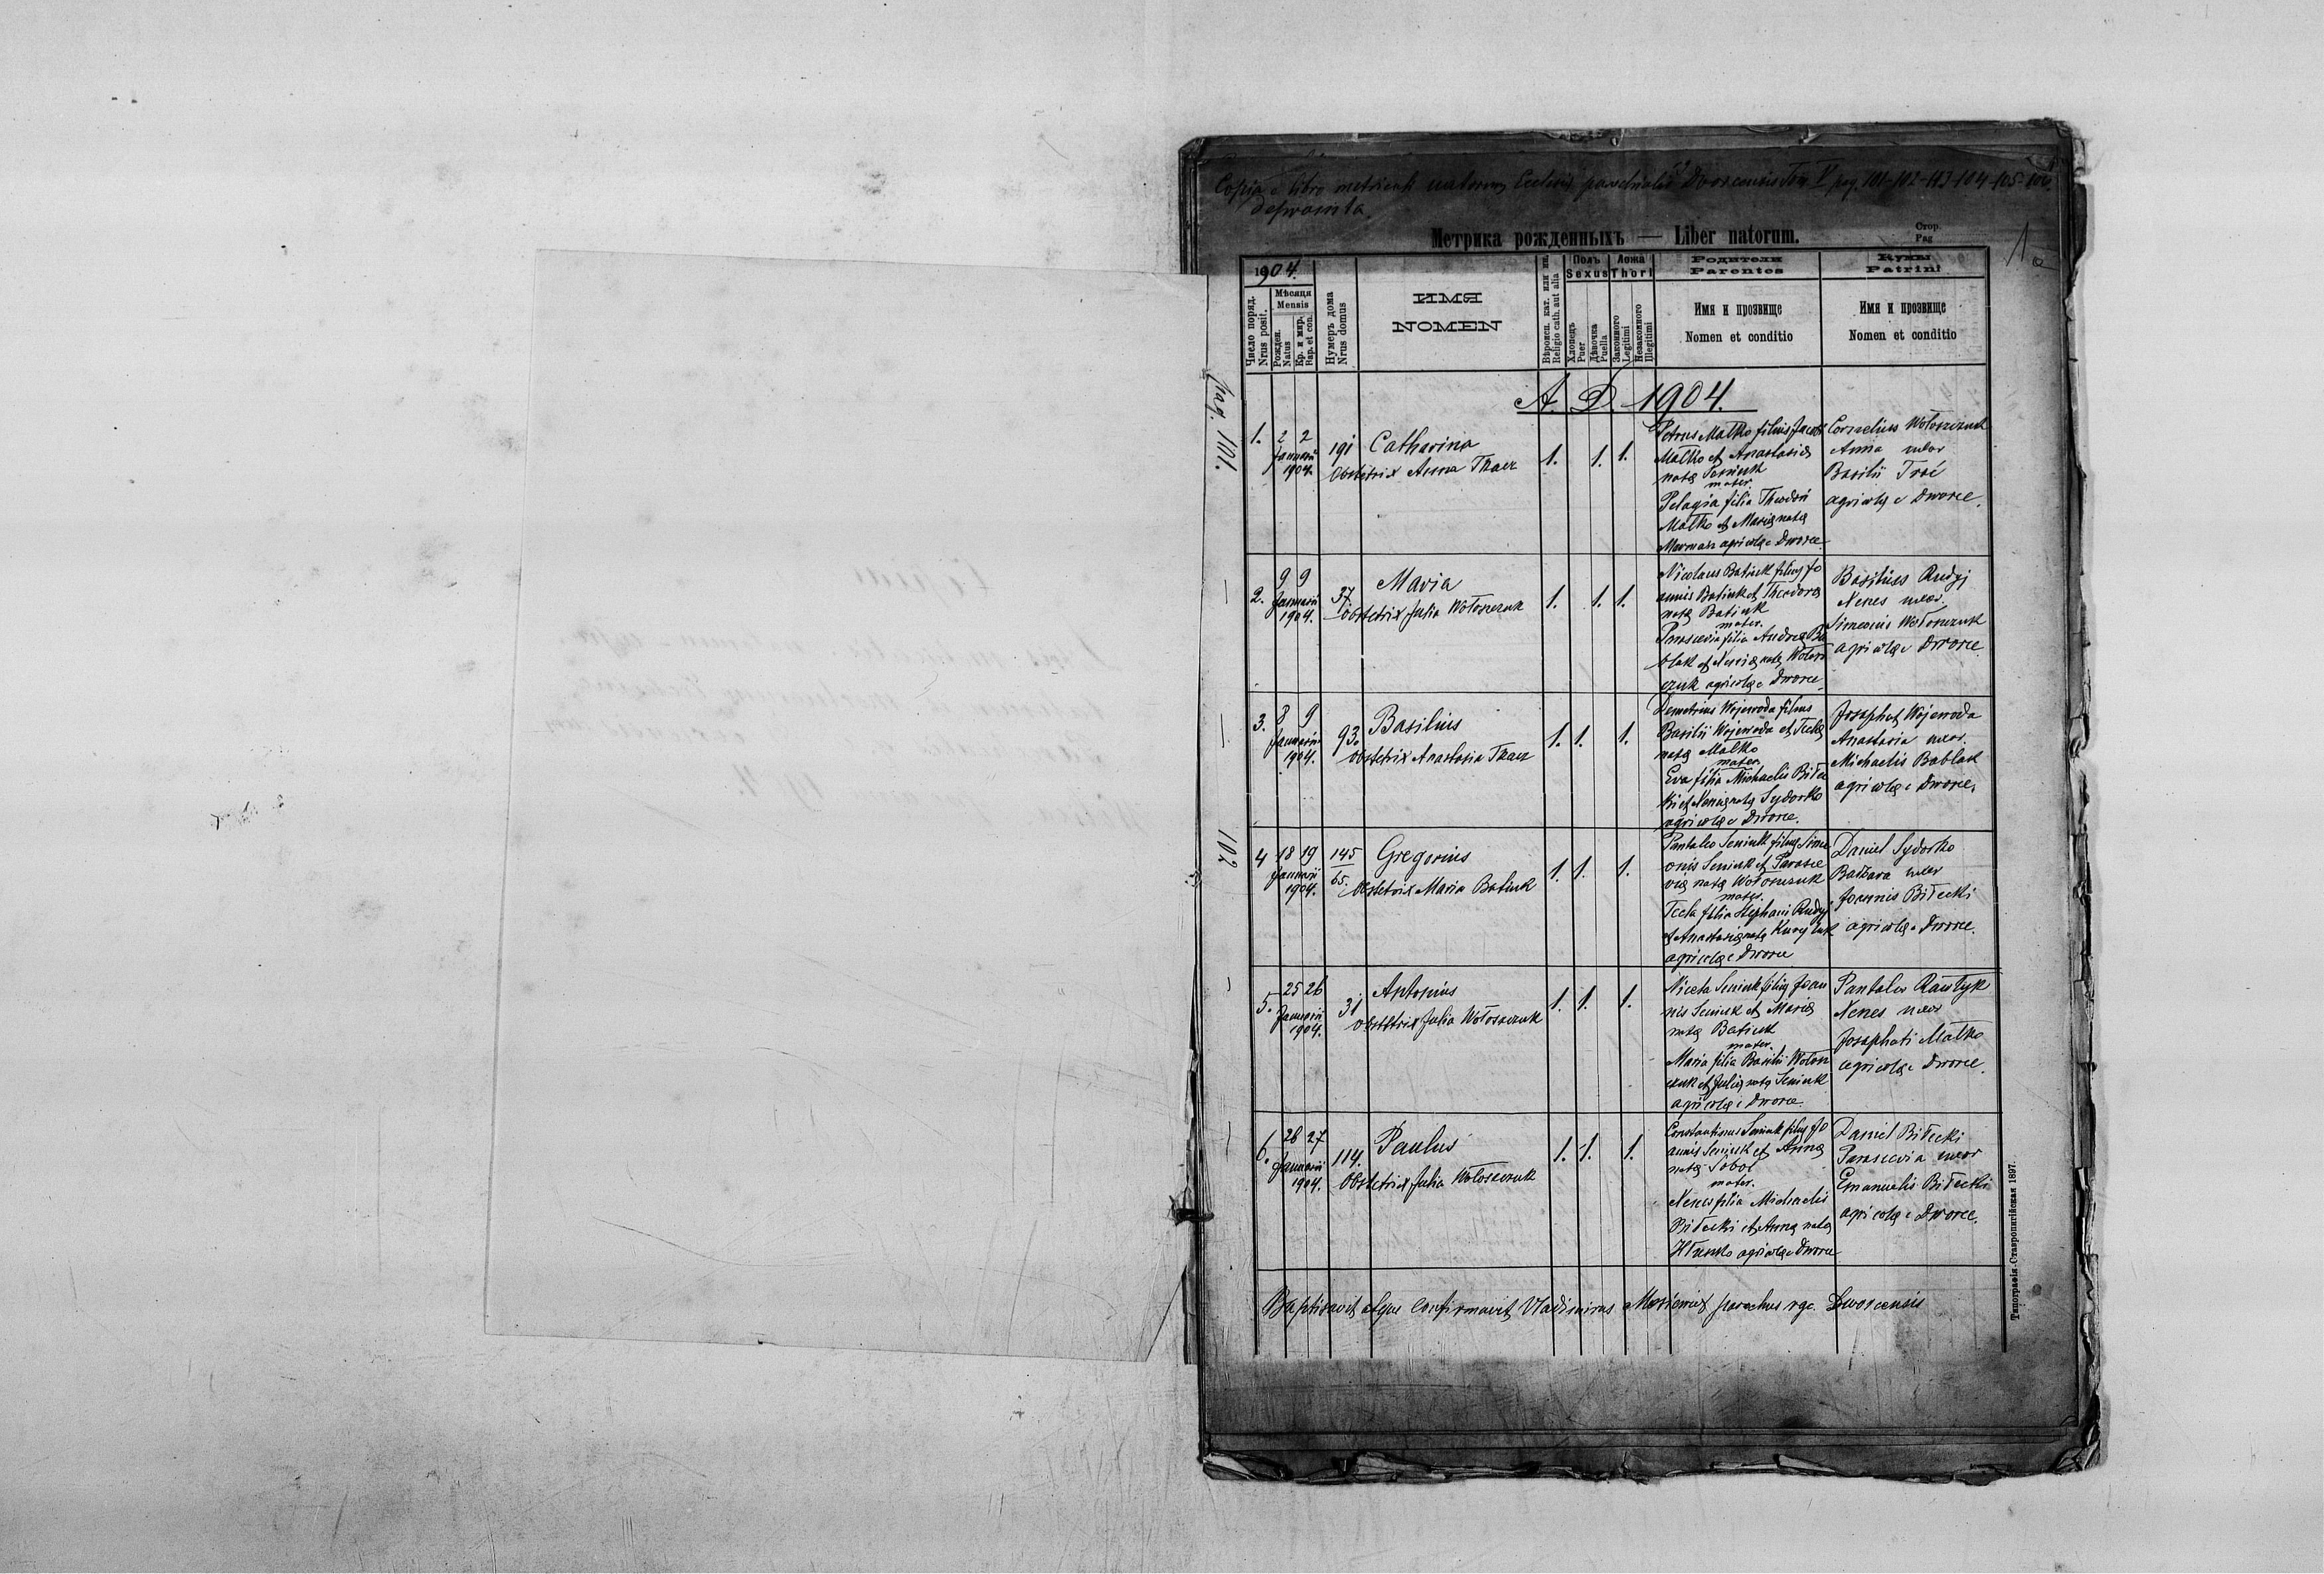 Copia e libro metricali natorum Ecclesiæ parochialis Dworcensis Tom V pag. 101-102-113-104-105-106.
deprompta.
Метрика рожденныхъ — Liber natorum.
Стор.
Pag
1a
1904.
Число поряд.
Nrus posit.
Мѣсяця
Mensis
Рожден.
Natus
Кр. и мир.
Bap. et con.
Нумеръ дома
Nrus domus
ИМЯ
NOMEN
Religio cath. aut alia
Полъ
Sexus
Хлопецъ
Puer
Дѣвочка
Puella
Ложа
Thori
Законного
Legitimi
Незаконного
Illegitimi
Родители
Parentes
Имя и прозвище
Nomen et conditio
Кумы
Patrini
Имя и прозвище
Nomen et conditio
A. D. 1904.
Pag. 101.
1. 2 2
Januarii
1904.
191
Catharina
Obstetrix Anna Tkacz
1. 1. 1.
Petrus Matko filius Jacobi
Matko et Anastasiæ
natæ Seniuk
mater.
Pelagia filia Theodori
Matko et Mariæ natæ
agricolæ e Dworce.
Cornelius Wołoszczuk
Anna uxor
Basilii
agricolæ e Dworce.
2. 9 9
Januarii
1904.
37
Maria
Obstetrix Julia Wołoszczuk
1. 1. 1.
Nicolaus Batiuk filius Jo
annis Batiuk et Theodoræ
natæ Batiuk
mater.
Parascevia filia Andreæ Ba
blak et Xeniæ natæ Wołosz
czuk agricolæ e Dworce.
Basilius Rudyj
Xenes uxor
Simeonis Wołoszczuk
agricolæ e Dworce
3. 8 9
Januarii
1904.
93.
Basilius
Obstetrix Anastasia Tkacz
1. 1. 1.
Demetrius Wojewoda filius
Basilii Wojewoda et Teclæ
natæ Matko
mater.
Eva filia Michaelis Biłec
ki et Xeniæ natæ Sydorko
agricolæ e Dworce.
Josaphat Wojewoda
Anastasia uxor
Michaelis Bablak
agricolæ e Dworce,
102
4 18 19
Januarii
1904.
145
65.
Gregorius
Obstetrix Maria Batiuk
1. 1. 1.
Pantaleo Seniuk filius Sime
onis Seniuk et Parasce
viæ natæ Wołoszczuk
mater.
Tecla filia Stephani Rudyj
et Anastasiæ natæ
agricolæ e Dworce
Daniel Sydorko
Barbara uxor
Joannis Biłecki
agricolæ e Dworce.
5. 25 26
Januarii
1904.
31
Antonius
Obstetrix Julia Wołoszczuk
1. 1. 1.
Niceta Seniuk filius Joan
nis Seniuk et Mariæ
natæ Batiuk
mater.
Maria filia Basilii Wołosz
czuk et Juliæ natæ Seniuk
agricolæ e Dworce.
Pantaleo
Xenes uxor
Josaphati Matko
agricolæ e Dworce.
6. 26 27
Januarii
1904.
114.
Paulus
Obstetrix Julia Wołoszczuk
1. 1. 1.
Constantinus Seniuk filius Jo
annis Seniuk et Annæ
natæ Sobol
mater.
Xenes filia Michaelis
Biłecki et Annæ natæ
agricolæ e Dworce
Daniel Biłecki
Parascevia uxor
Emanuelis Biłecki
agricolæ e Dworce.
Baptisavit atque confirmavit Vladimirus parochus rgc. Dworcensis
Типографія Ставропигійская 1897.